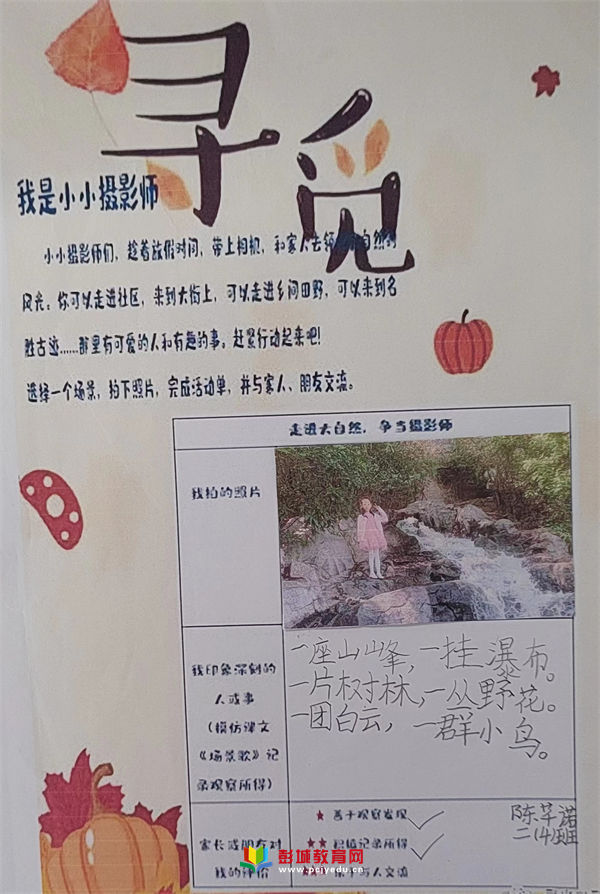 寻觅
我是小小摄影师
小小摄影师们，趁着放假时间，带上相机，和家人去领略自然的
风光。你可以走进社区，来到大街上，可以走进乡间田野，可以来到名
胜古迹……那里有可爱的人和有趣的事。赶紧行动起来吧！
选择一个场景，拍下照片，完成活动单，并与家人、朋友交流。
走进大自然，争当摄影师
我拍的照片
我印象深刻的
人或事
（模仿课文
《场景歌》记
录观察所得）
一座山峰，一挂瀑布。
一片树林，一丛野花。
一团白云，一群小鸟。
家长或朋友对
我的评价
★ 善于观察发现 ✓
★★ 积极记录所得 ✓
人交流
陈芊诺
二（4）班
彭城教育网
www.pcjyedu.cn